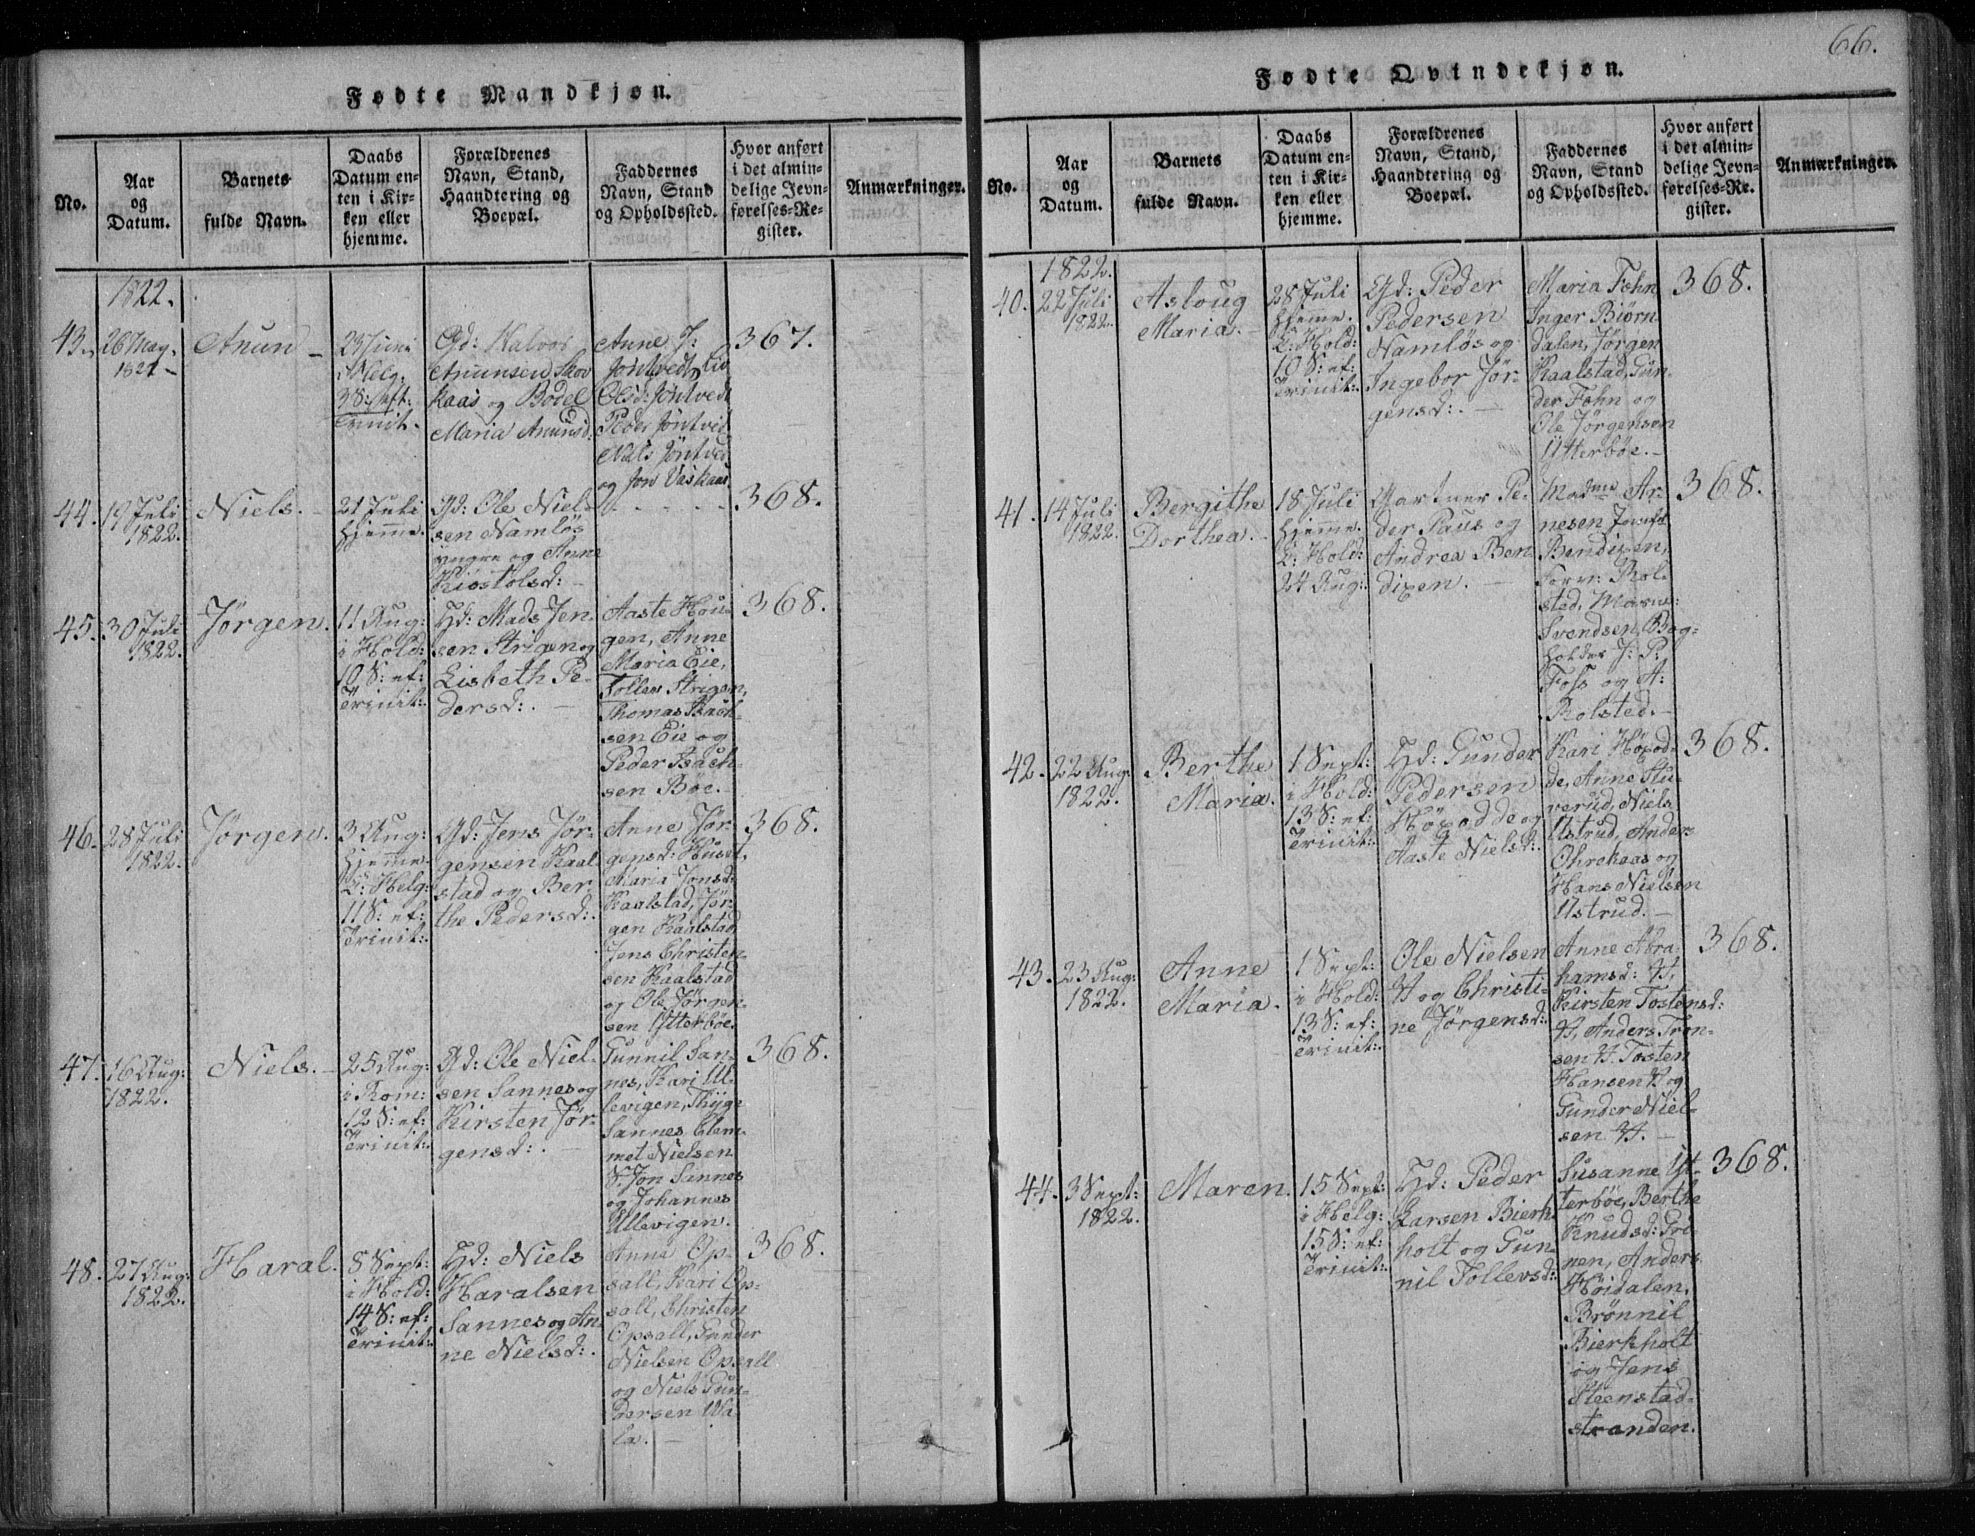 66.
Fødte Mandkjøn.
No.
Aar
og
Datum.
Barnets
fulde Navn.
Daabs
Datum en-
ten i Kir-
ken eller
hjemme.
Forældrenes
Navn, Stand,
Haandtering og
Boepæl.
Faddernes
Navn, Stand
og Opholdssted.
Hvor anført
i det almin-
delige Jevn-
førelses-Re-
gister.
Anmærkninger.
1822.
43.
26 May
Anun
23 Juni
i Helg.
3 S: eft:
Trinit.
Gd: Halvor
Anunsen Skov
kaas og Bodel
Maria Anunsd:
Anne J:
Jøntvedt, Liv
Olsd: Jøntvedt
Peder Jøntved
Niels Jøntved
og Jon Vaskaas
367.
44.
19 Juli
1822.
Niels.
21 Juli
hjemme.
Gd: Ole Niel-
sen Namløs
yngre og Anne
Kiostolsd:
368.
45.
30 Juli
1822.
Jørgen.
11 Aug:
i Hold:
10 S: ef:
Trinit:
Hd: Mads Jen-
sen Strigen og
Lisbeth Pe-
dersd:.
Aaste Hou-
gen, Anne
Maria Eie,
Tollev Strigen,
Thomas Isach-
sen Eie og
Peder Isach-
sen Bøe.
368.
46.
28 Juli
1822.
Jørgen.
3 Aug:
hjemme.
I: Helg:
11 S: ef:
Trinit:.
Gd: Jens Jør-
gensen Kaal
stad og Ber-
the Pedersd:.
Anne Jør-
gensd: Huset,
Maria Jonsd:
Kaalstad, Jør-
gen Kaalstad
Jens Christen-
sen Kaalstad
og Ole Jørgen-
sen Ytterbøe.
368.
47.
16 Aug:
1822.
Niels.
25 Aug:
i Rom:
12 S: ef:
Trinit:.
Gd: Ole Niel-
sen Sannes og
Kirsten Jør-
gensd:.
Gunnil San-
nes, Kari Ul-
levigen, Thyge
Sannes, Clem-
met Nielsen
S. Jon Sannes
og Johannes
Ullevigen.
368.
48.
27 Aug:
1822.
Haral.
8 Sept:
i Hold:
14 S: ef:
Trinit:.
Hd: Niels
Haralsen
Sannes og An-
ne Nielsd:.
Anne Op-
sall, Kari Op-
sall, Christen
Opsall, Gunder
Nielsen Opsall
og Niels Gun-
dersen Wa-
la.
368.
Fødte Qvindekjøn.
No.
Aar
og
Datum.
Barnets
fulde Navn.
Daabs
Datum en-
ten i Kir-
ken eller
hjemme.
Forældrenes
Navn, Stand,
Haandtering og
Boepæl.
Faddernes
Navn, Stand
og Opholdssted.
Hvor anført
i det almin-
delige Jevn-
førelses-Re-
gister.
Anmærkninger.
1822.
40.
22 Juli
1822.
Asloug
Maria.
28 Juli
hjemme.
I: Hold:
10 S: ef:
Trinit:.
Gd: Peder
Pedersen
Namløs og
Ingebor Jør-
gensd:.
Maria Fehn
Inger Biørn-
dalen, Jørgen
Kaalstad, Gun-
der Fehn og
Ole Jørgensen
Ytterbøe.
368.
41.
14 Juli
1822.
Bergithe
Dorthea.
18 Juli
hjemme.
I: Hold:
24 Aug:
Gartner Pe-
der Paus og
Andrea Ben-
dixen.
Madme Ar-
nesen Jomfr
Bendixen,
Rol-
sted,
Svendsen, Bog-
holder J: P:
Foss og A:
Rolsted.
368.
42.
22 Aug:
1822.
Berthe
Maria.
1 Sept:
i Hold:
13 S: ef:
Trinit:.
Hd: Gunder
Pedersen
Høxodde og
Aaste Nielsd:
Kari Høxod-
de, Anne Stu-
verud, Niels
Ustrud, Anders
Ohrekaas og
Hans Nielsen
Ustrud.
368.
43.
23 Aug:
1822.
Anne
Maria.
1 Sept:
i Hold:
13 S: ef:
Trinit:.
Ole Nielsen
H og Christi-
ne Jørgensd:
Anne Abra-
hamsd: H,
Kirsten Tostensd:
H, Anders Tron-
sen H. Tosten
Hansen H og
Gunder Niel-
sen H.
368.
44.
3 Sept:
1822.
Maren.
15 Sept:
i Helg:
15 S: ef:
Trinit:.
Hd: Peder
Larsen Bierk-
holt og Gun-
nil Tollevsd:
Susanne Yt-
terbøe, Berthe
Knudsd: Gri-
nen, Anders
Høidalen,
Brønnil
Bierkholt
og Jens
Steenstad-
stranden.
368.